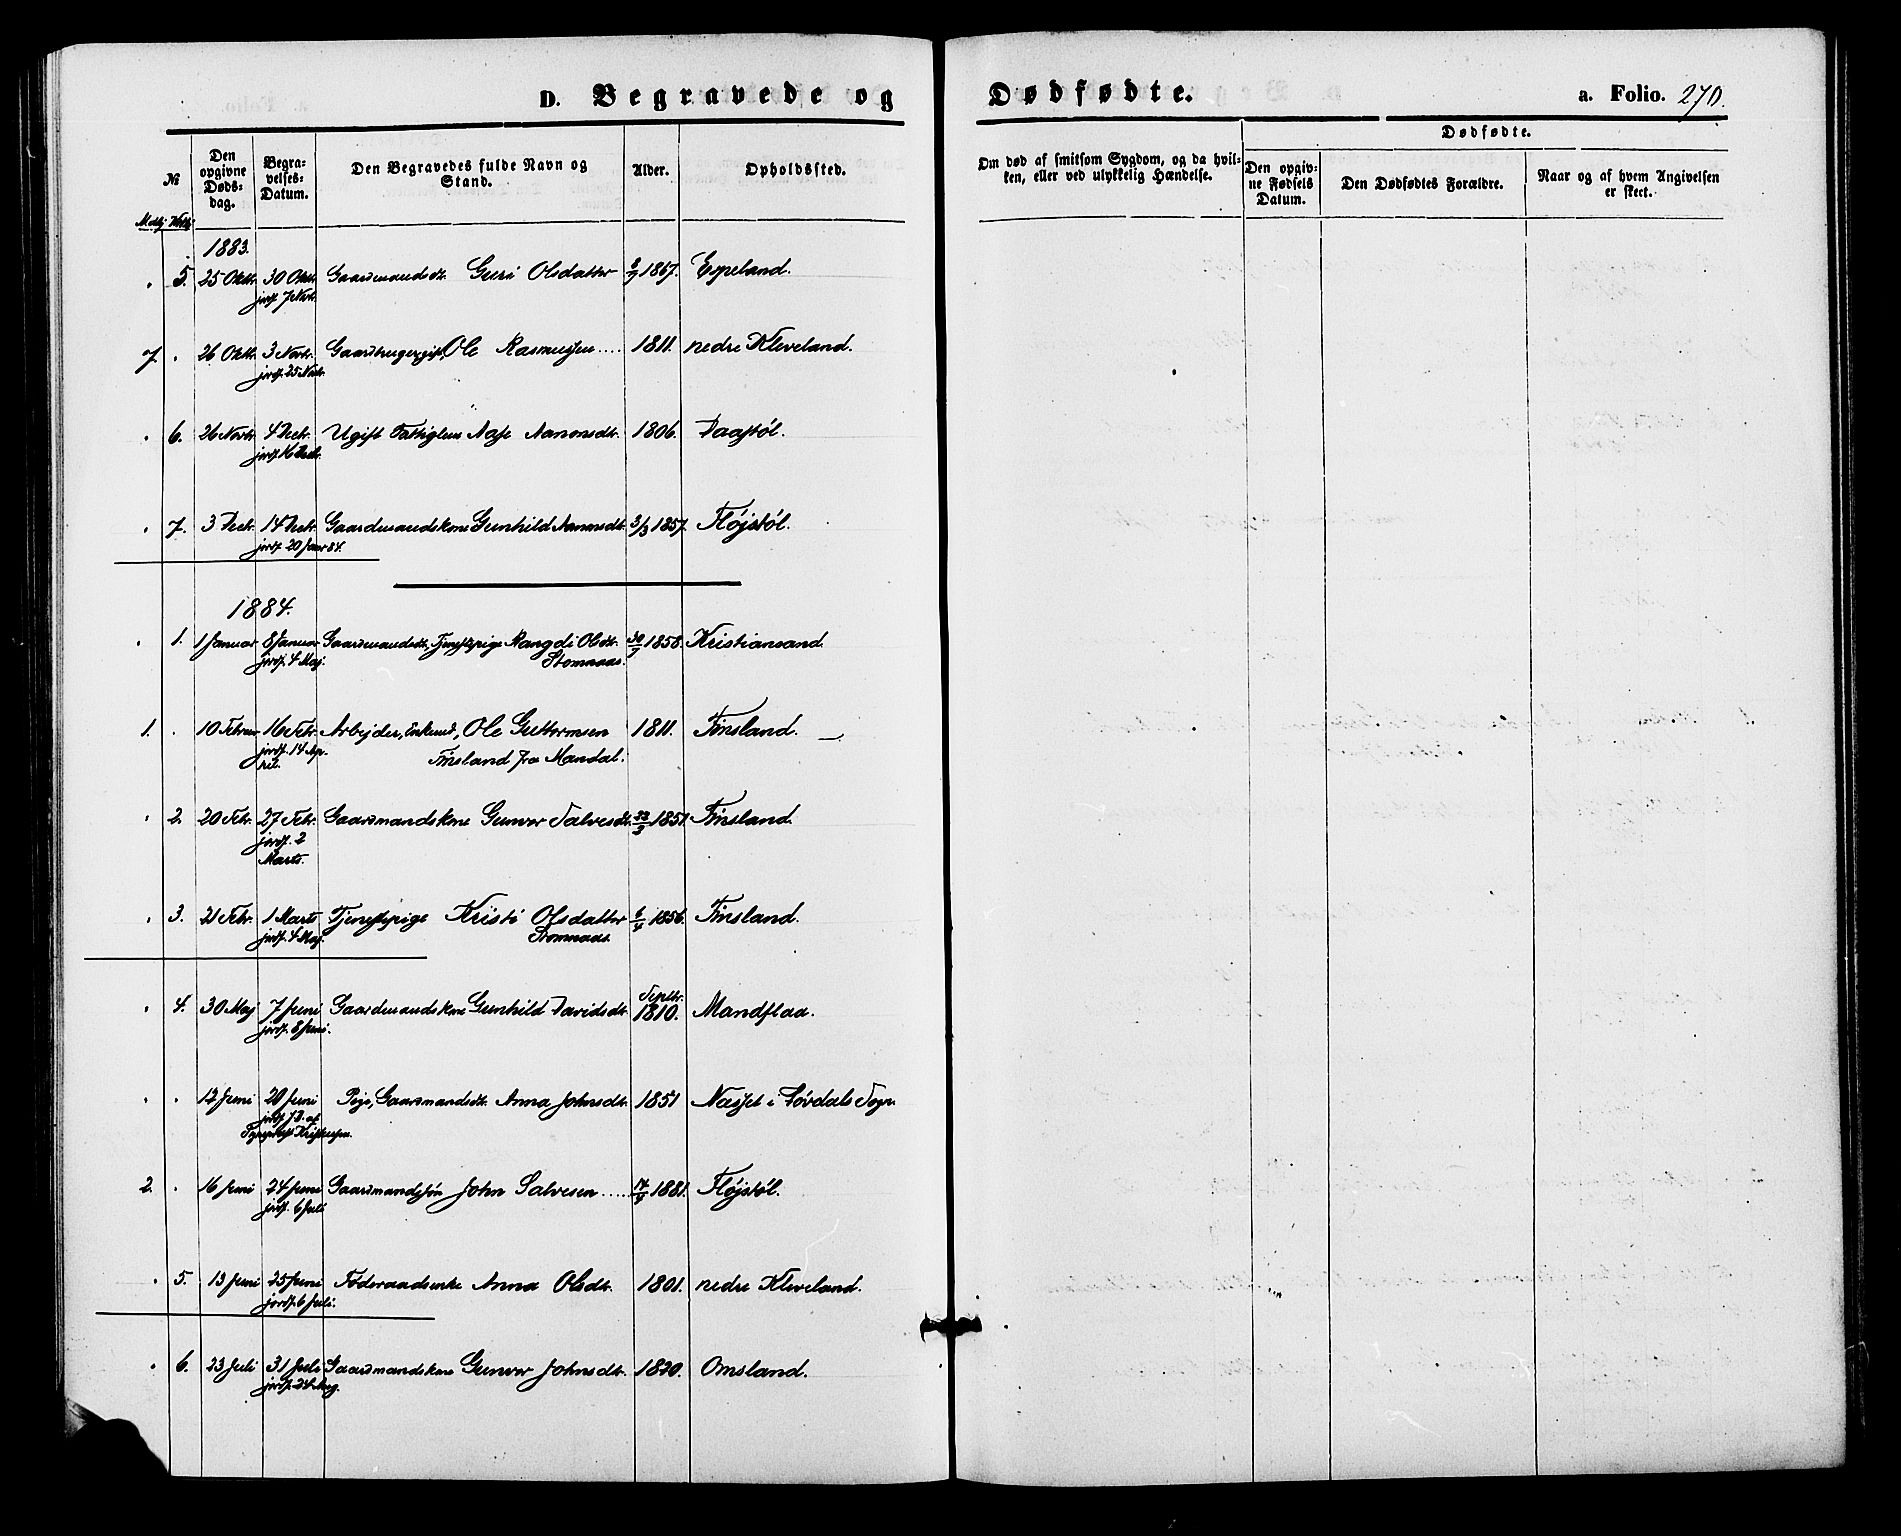 D. Begravede og Dødfødte. a. Folio. 270.
№
Mandkj Kvindkj
Den opgivne Døds-dag.
Begra-velses-Datum.
Den Begravedes fulde Navn og Stand.
Alder.
Opholdssted.
Om død af smitsom Sygdom, og da hvil-ken, eller ved ulykkelig Hændelse.
Dødfødte.
Den opgiv-ne Fødsels Datum.
Den Dødfødtes Forældre.
Naar og af hvem Angivelsen er skeet.
1883.
5. 25 Oktr. 30 Oktr. Gaardmandsdt. Guri Olsdatter 1857. Espeland.
jordf. 7 Novr.
7. 26 Oktr. 3 Novr. Gaardbruger, gift, Ole Rasmussen .... 1811. nedre Kleveland.
jordf. 25 Novr.
6. 26 Novr. 4 Decr. Ugift Fattiglem Aase Aanonsdt. 1806. Daastöl.
jordf. 16 Decbr.
7. 3 Decr. 14 Decr. Gaardmandskone Gunhild Aanonsdt. 3/3 1857. Fløjstöl.
jordf. 20 Januar 84.
1884.
1. 1 Januar 8 Januar Gaardmandsdt., Tjenestepige Rangdi Olsdt. 30/7 1858. Kristiansand.
jordf. 4 Maj. Stomnaas.
1. 10 Februar 16 Febr. Arbejder, Enkemd., Ole Guttormsen 1811. Finsland.
jordf. 14 Ap-ril. Finsland fra Mandal.
2. 20 Febr. 27 Febr. Gaardmandskone Gunvor Salvesdt. 23/3 1851. Finsland.
jordf. 2
Marts.
3. 21 Febr. 1 Marts Tjenestepige Kristi Olsdatter 6/4 1856. Finsland.
jordf. 4 Maj. Stomnaas.
4. 30 Maj 7 Juni Gaardmandskone Gunhild Davidsdt. Septbr. 1810. Mandflaa.
jordf. 8 Juni.
12 Juni 20 Juni Pige, Gaardmandsdt. Anna Johnsdt. 1851 Næsset i Løvdals Sogn
jordf. J.D. af
2. 16 Juni 24 Juni Gaardmandssøn John Salvesen .... 17/9 1881. Fløjstöl.
jordf. 6 Juli
5. 13 Juni 25 Juni Føderaadsenke Anna Olsdt. 1801. nedre Kleveland.
jordf. 6 Juli.
6. 23 Juli 31 Juli Gaardmandskone Gunvor Johnsdt. 1820. Omsland.
jordf. 24 Aug.